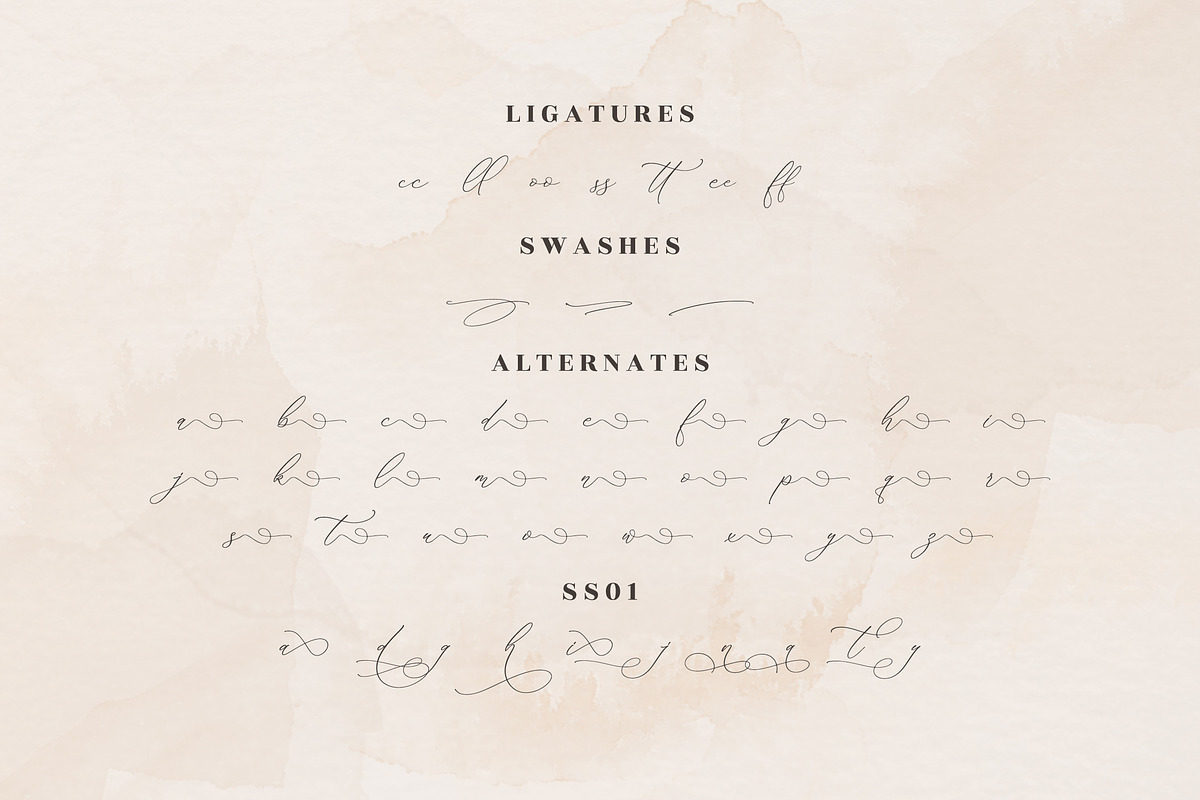 LIGATURES
cc ll oo ss tt ee ff
SWASHES
ALTERNATES
a b c d e f g h i
j k l m n o p q r
s t u v w x y z
SS01
a d g h i j n q t y